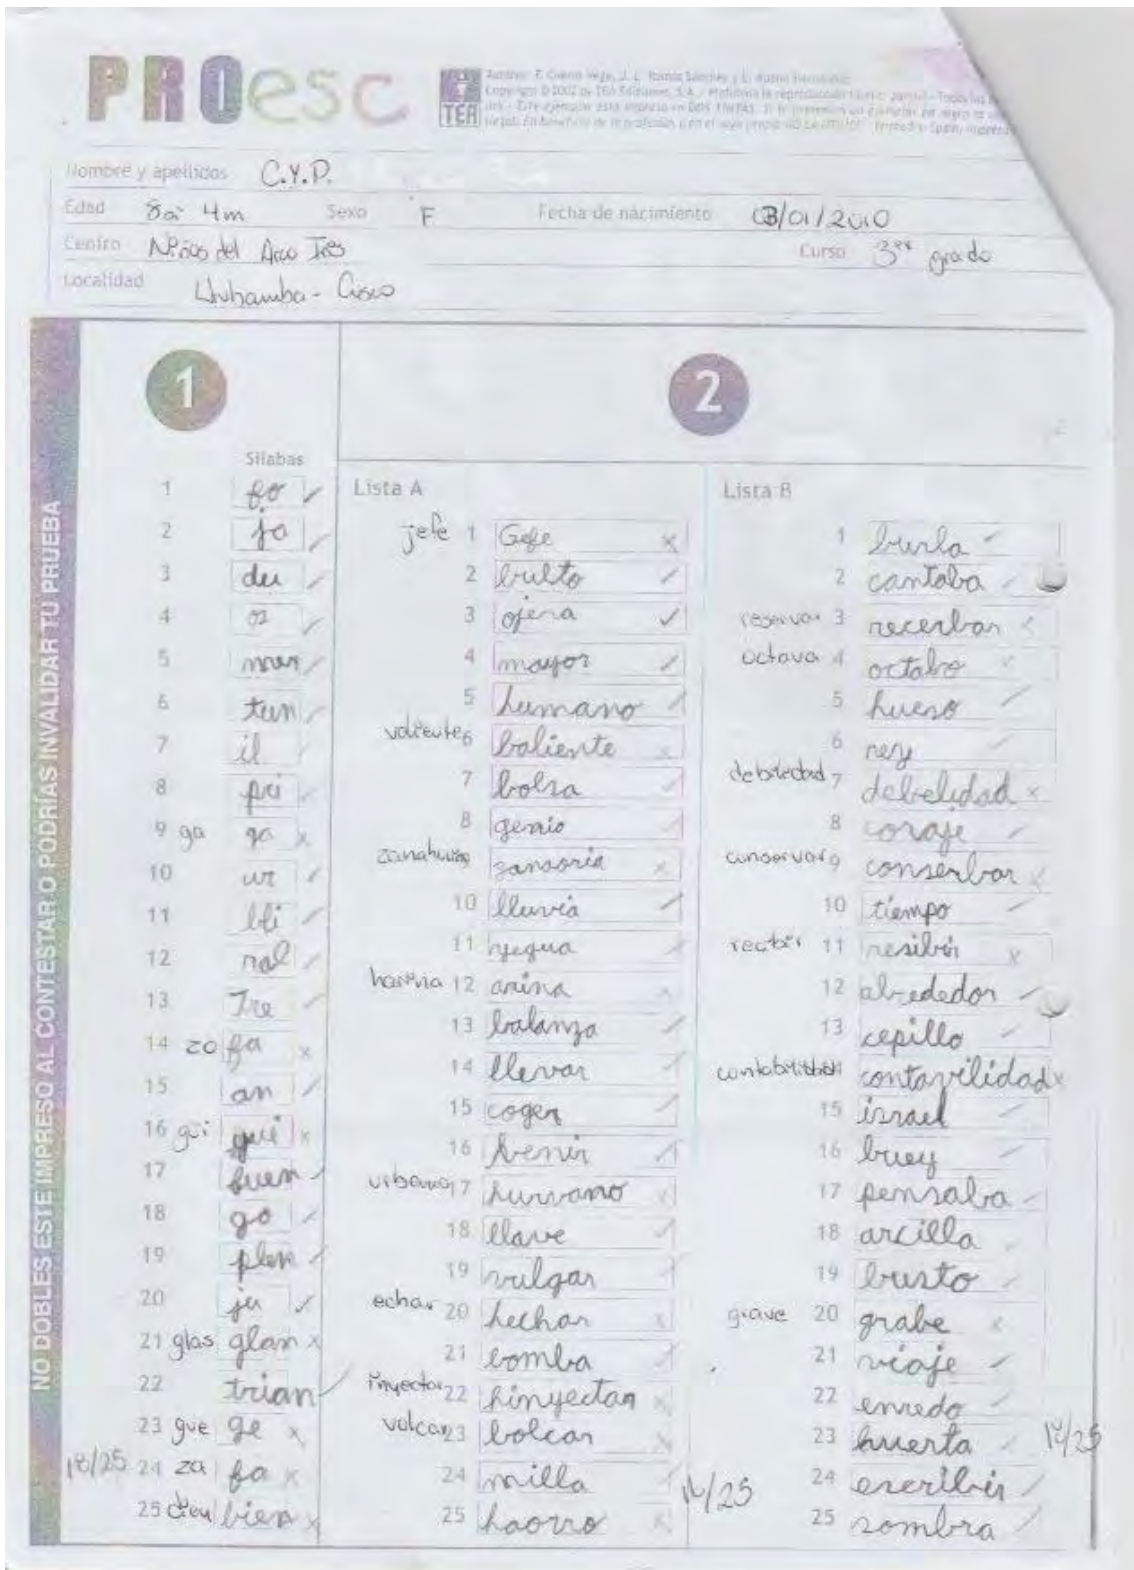 PROesc
TEA
Nombre y apellidos C.Y.P.
Edad 8a 4m Sexo F Fecha de nacimiento 03/01/2010
Centro Niños del Arco Iris Curso 3er grado
Localidad Urubamba - Cusco
NO DOBLES ESTE IMPRESO AL CONTESTAR O PODRÍAS INVALIDAR TU PRUEBA
1
Sílabas
1 fo ✓
2 ja ✓
3 du ✓
4 oz ✓
5 mer ✓
6 tun ✓
7 il ✓
8 pri ✓
9 ga ga x
10 ur ✓
11 bli ✓
12 ral ✓
13 Tre ✓
14 zo fa x
15 an ✓
16 güi gui x
17 fuen ✓
18 go ✓
19 plen ✓
20 ju ✓
21 glas glan x
22 trian ✓
23 gue ge x
18/25 24 za fa x
25 bien x
2
Lista A
jefe 1 Gefe x
2 bulto ✓
3 ojera ✓
4 mayor ✓
5 humano ✓
valiente 6 baliente x
7 bolsa ✓
8 genio ✓
zanahoria 9 sanaoria x
10 lluvia ✓
11 yegua ✓
harina 12 arina x
13 balanza ✓
14 llevar ✓
15 coger ✓
16 benir ✓
urbano 17 hurvano x
18 llave ✓
19 vulgar ✓
echar 20 hechar x
21 bomba ✓
inyectar 22 hinyectar x
volcar 23 bolcar x
24 milla ✓
25 haorro x
Lista B
1 burla ✓
2 cantaba ✓
reservar 3 recerbar x
octavo 4 octabo x
5 hueso ✓
6 rey ✓
debilidad 7 debelidad x
8 coraje ✓
conservar 9 conserbar x
10 tiempo ✓
recibir 11 resibir x
12 alrededor ✓
13 cepillo ✓
contabilidad contavilidad x
15 israel ✓
16 buey ✓
17 pensaba ✓
18 arcilla ✓
19 busto ✓
grave 20 grabe x
21 viaje ✓
22 enredo ✓
23 huerta ✓
24 escribir ✓
25 sombra ✓